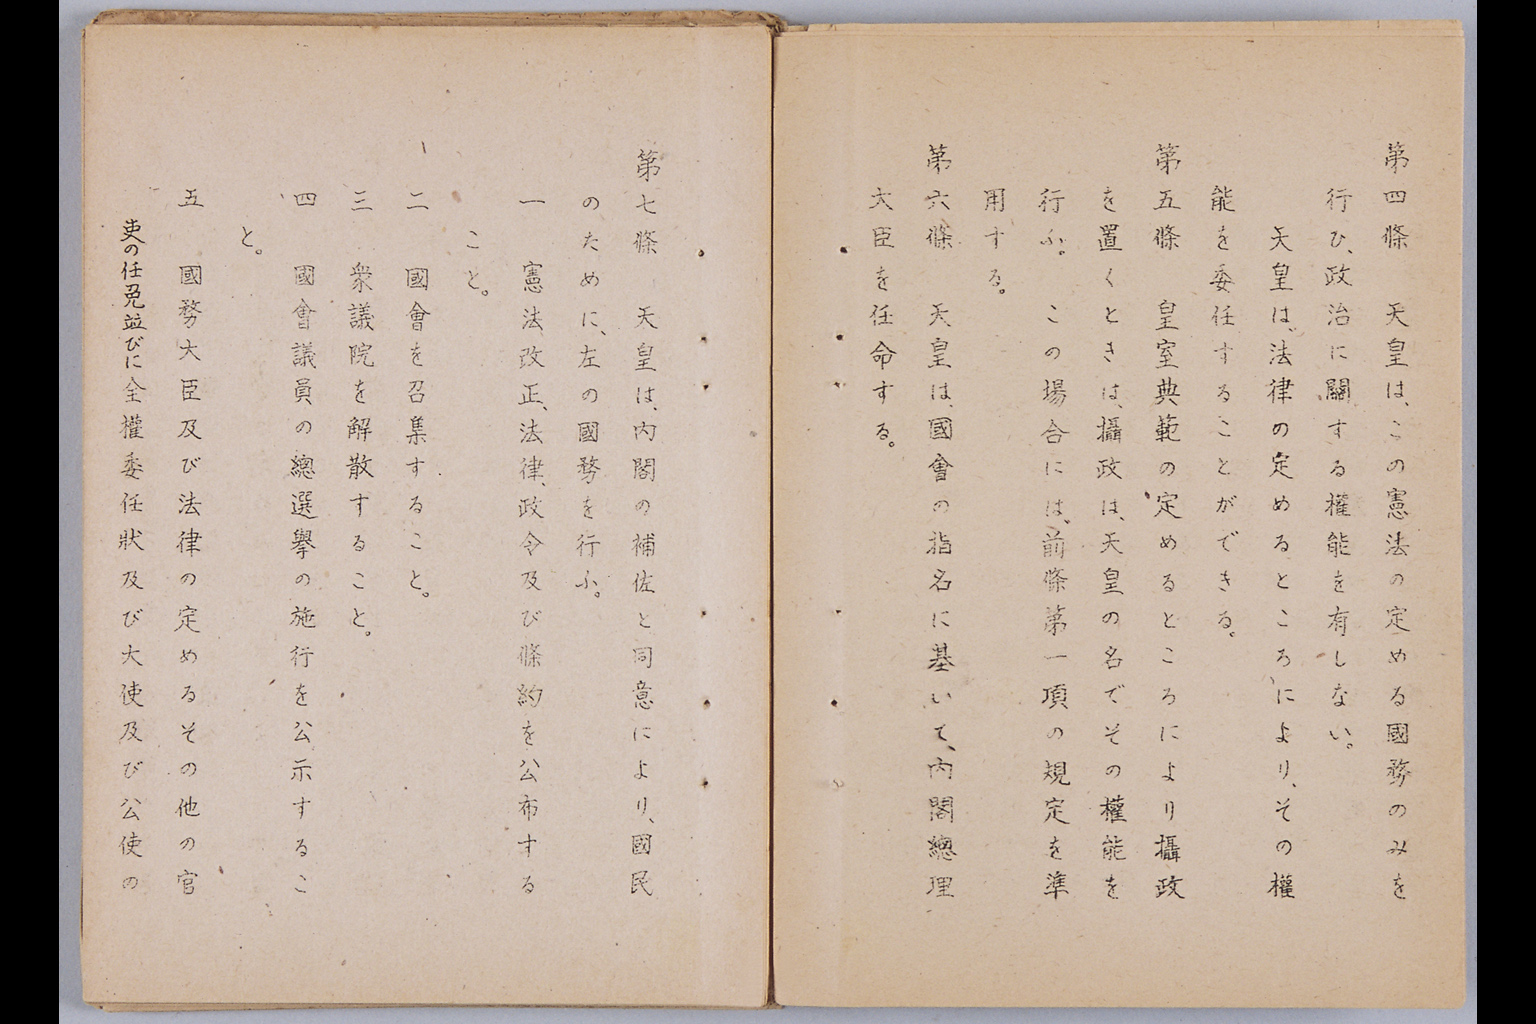 第四條　天皇は、この憲法の定める國務のみを
行ひ、政治に關する權能を有しない。
天皇は、法律の定めるところにより、その權
能を委任することができる。
第五條　皇室典範の定めるところにより攝政
を置くときは、攝政は、天皇の名でその權能を
行ふ。この場合には、前條第一項の規定を準
用する。
第六條　天皇は、國會の指名に基いて、内閣總理
大臣を任命する。
第七條　天皇は、内閣の補佐と同意により、國民
のために、左の國務を行ふ。
一　憲法改正、法律、政令及び條約を公布する
こと。
二　國會を召集すること。
三　衆議院を解散すること。
四　國會議員の總選擧の施行を公示するこ
と。
五　國務大臣及び法律の定めるその他の官
吏の任免並びに全權委任狀及び大使及び公使の